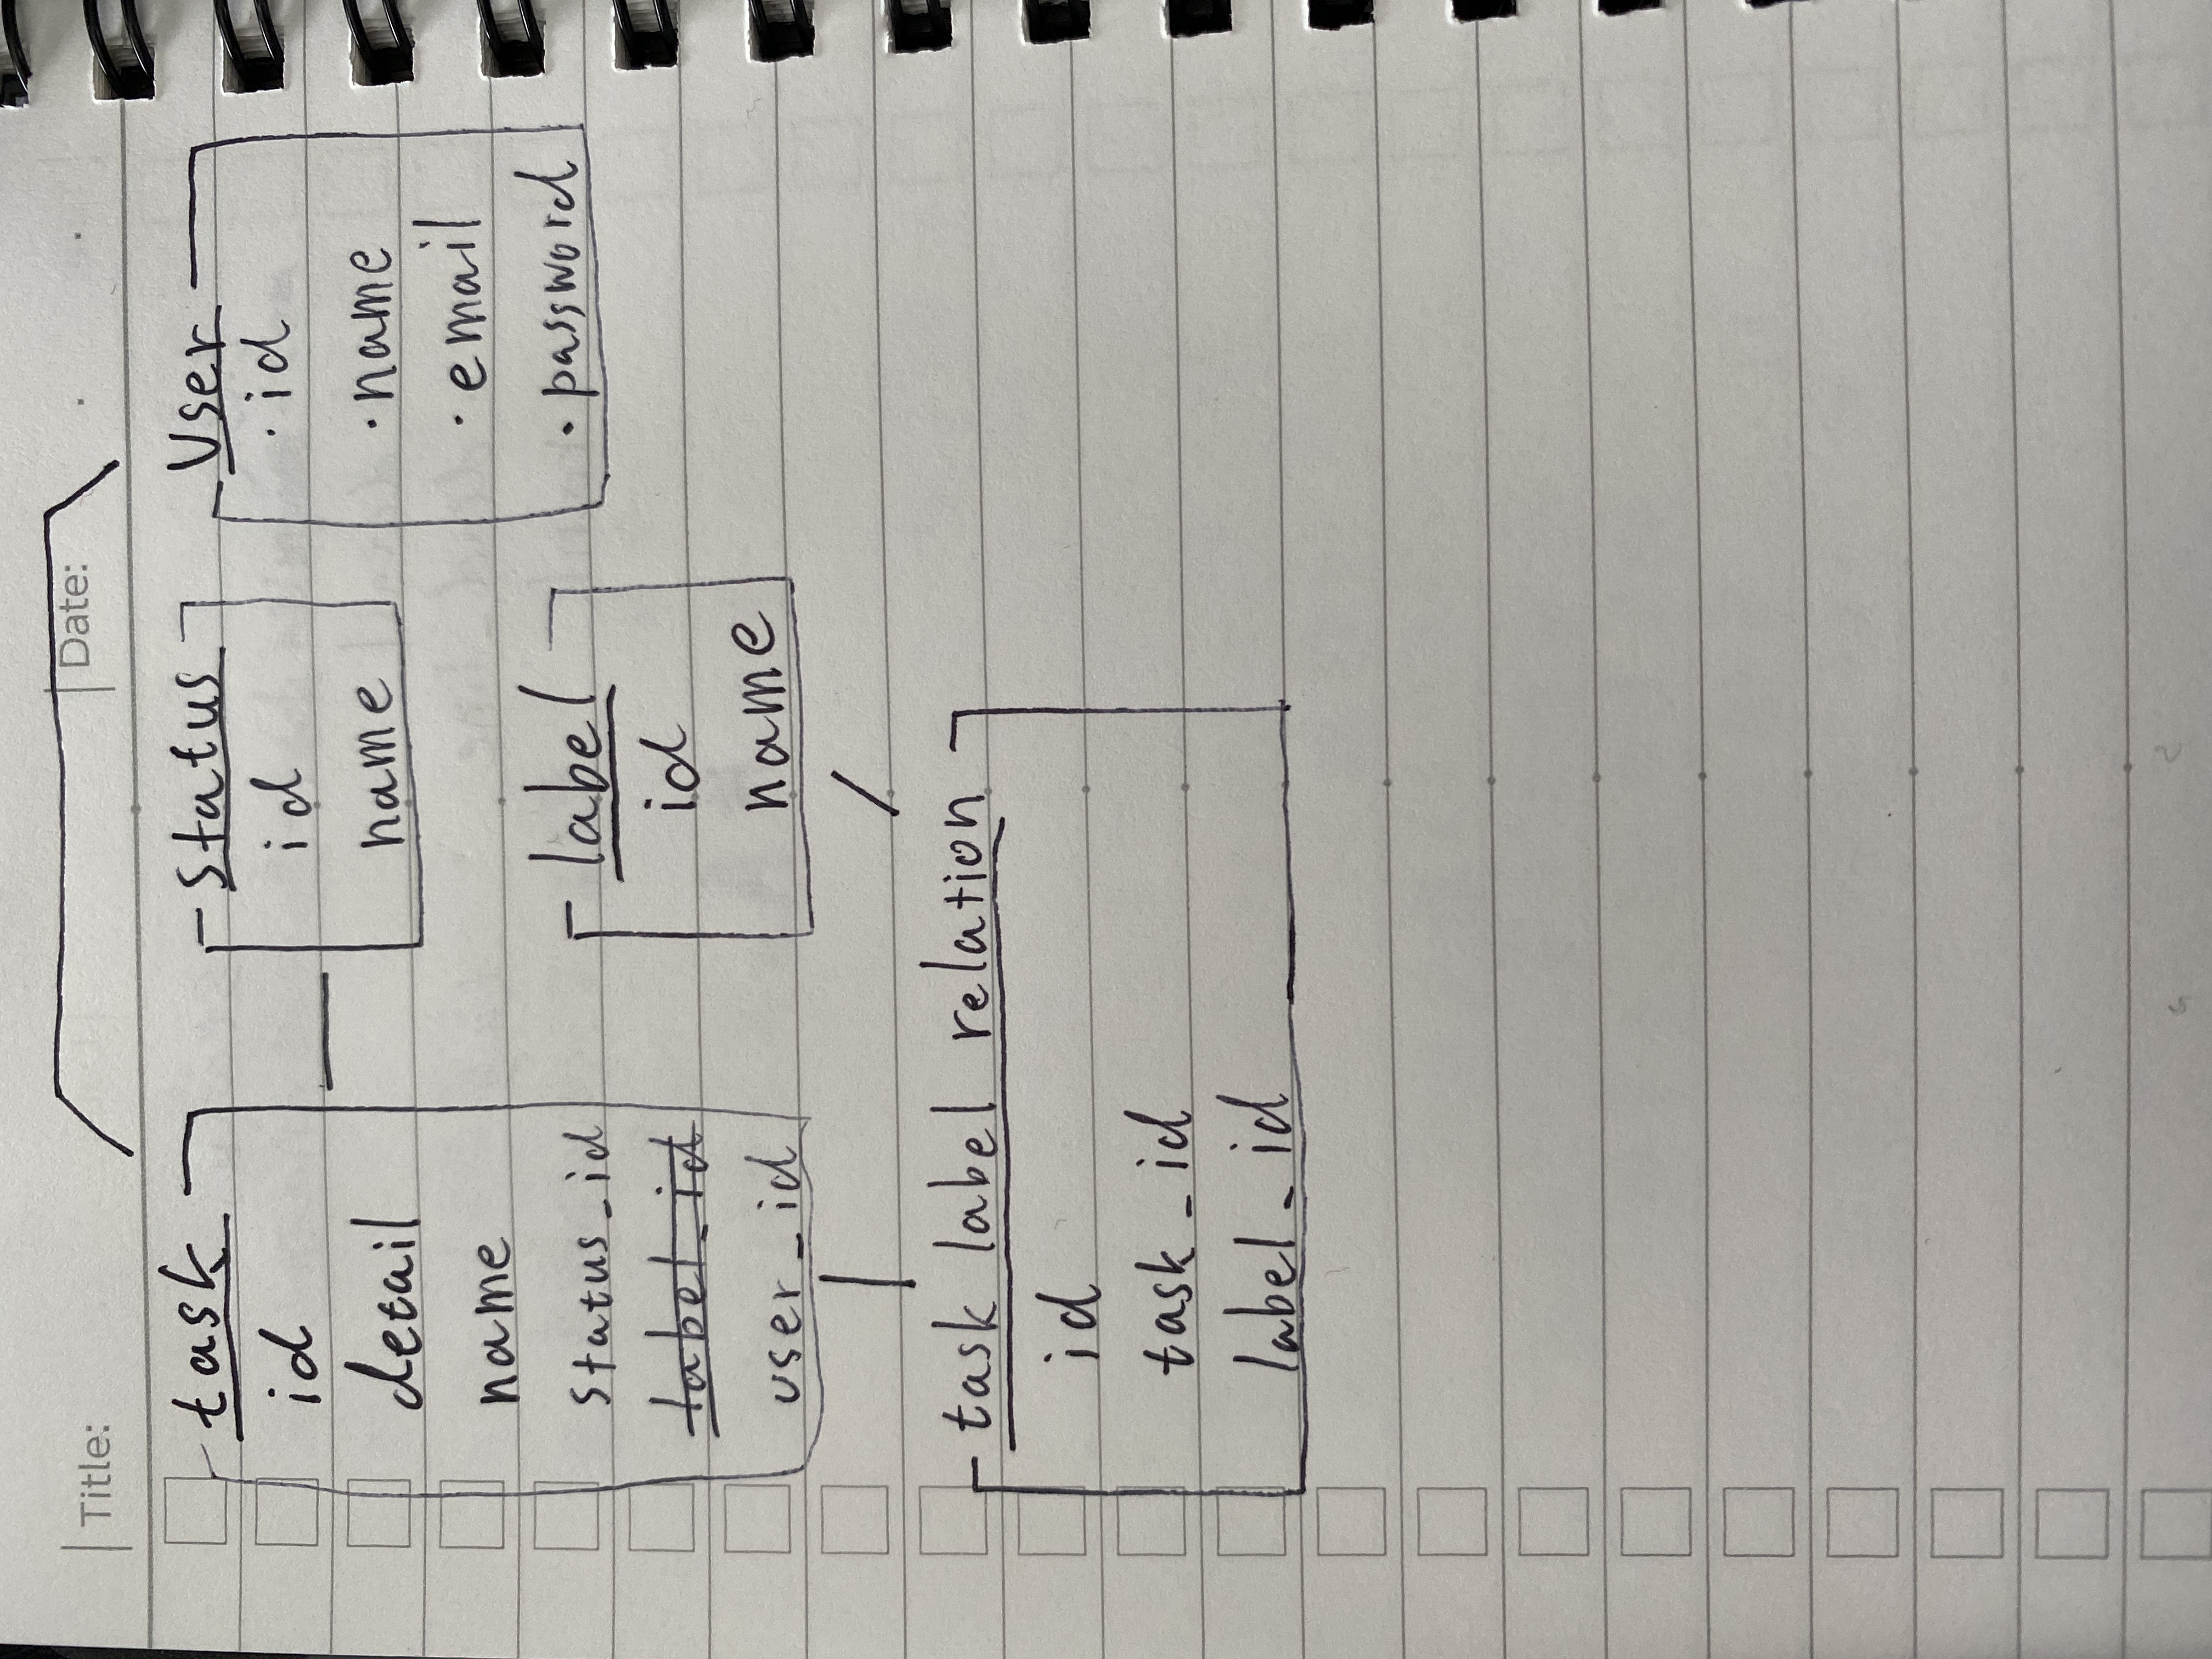 Title:
Date:
task
id
detail
name
status_id
label_id
user_id
status
id
name
User
· id
· name
· email
· password
label
id
name
task label relation
id
task_id
label_id